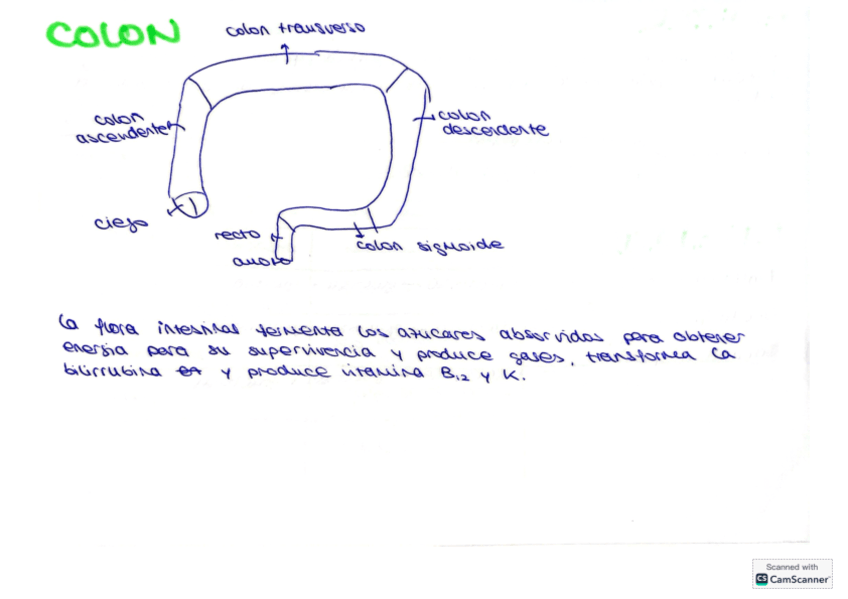 COLON
colon transverso
colon
ascendente
colon
descendente
ciego
recto
colon sigmoide
ano
la flora intestinal fermenta los azucares absorvidos para obtener
energia para su supervivencia y produce gases, transforma la
bilirrubina y produce vitamina B₁₂ y K.
Scanned with
CS CamScanner